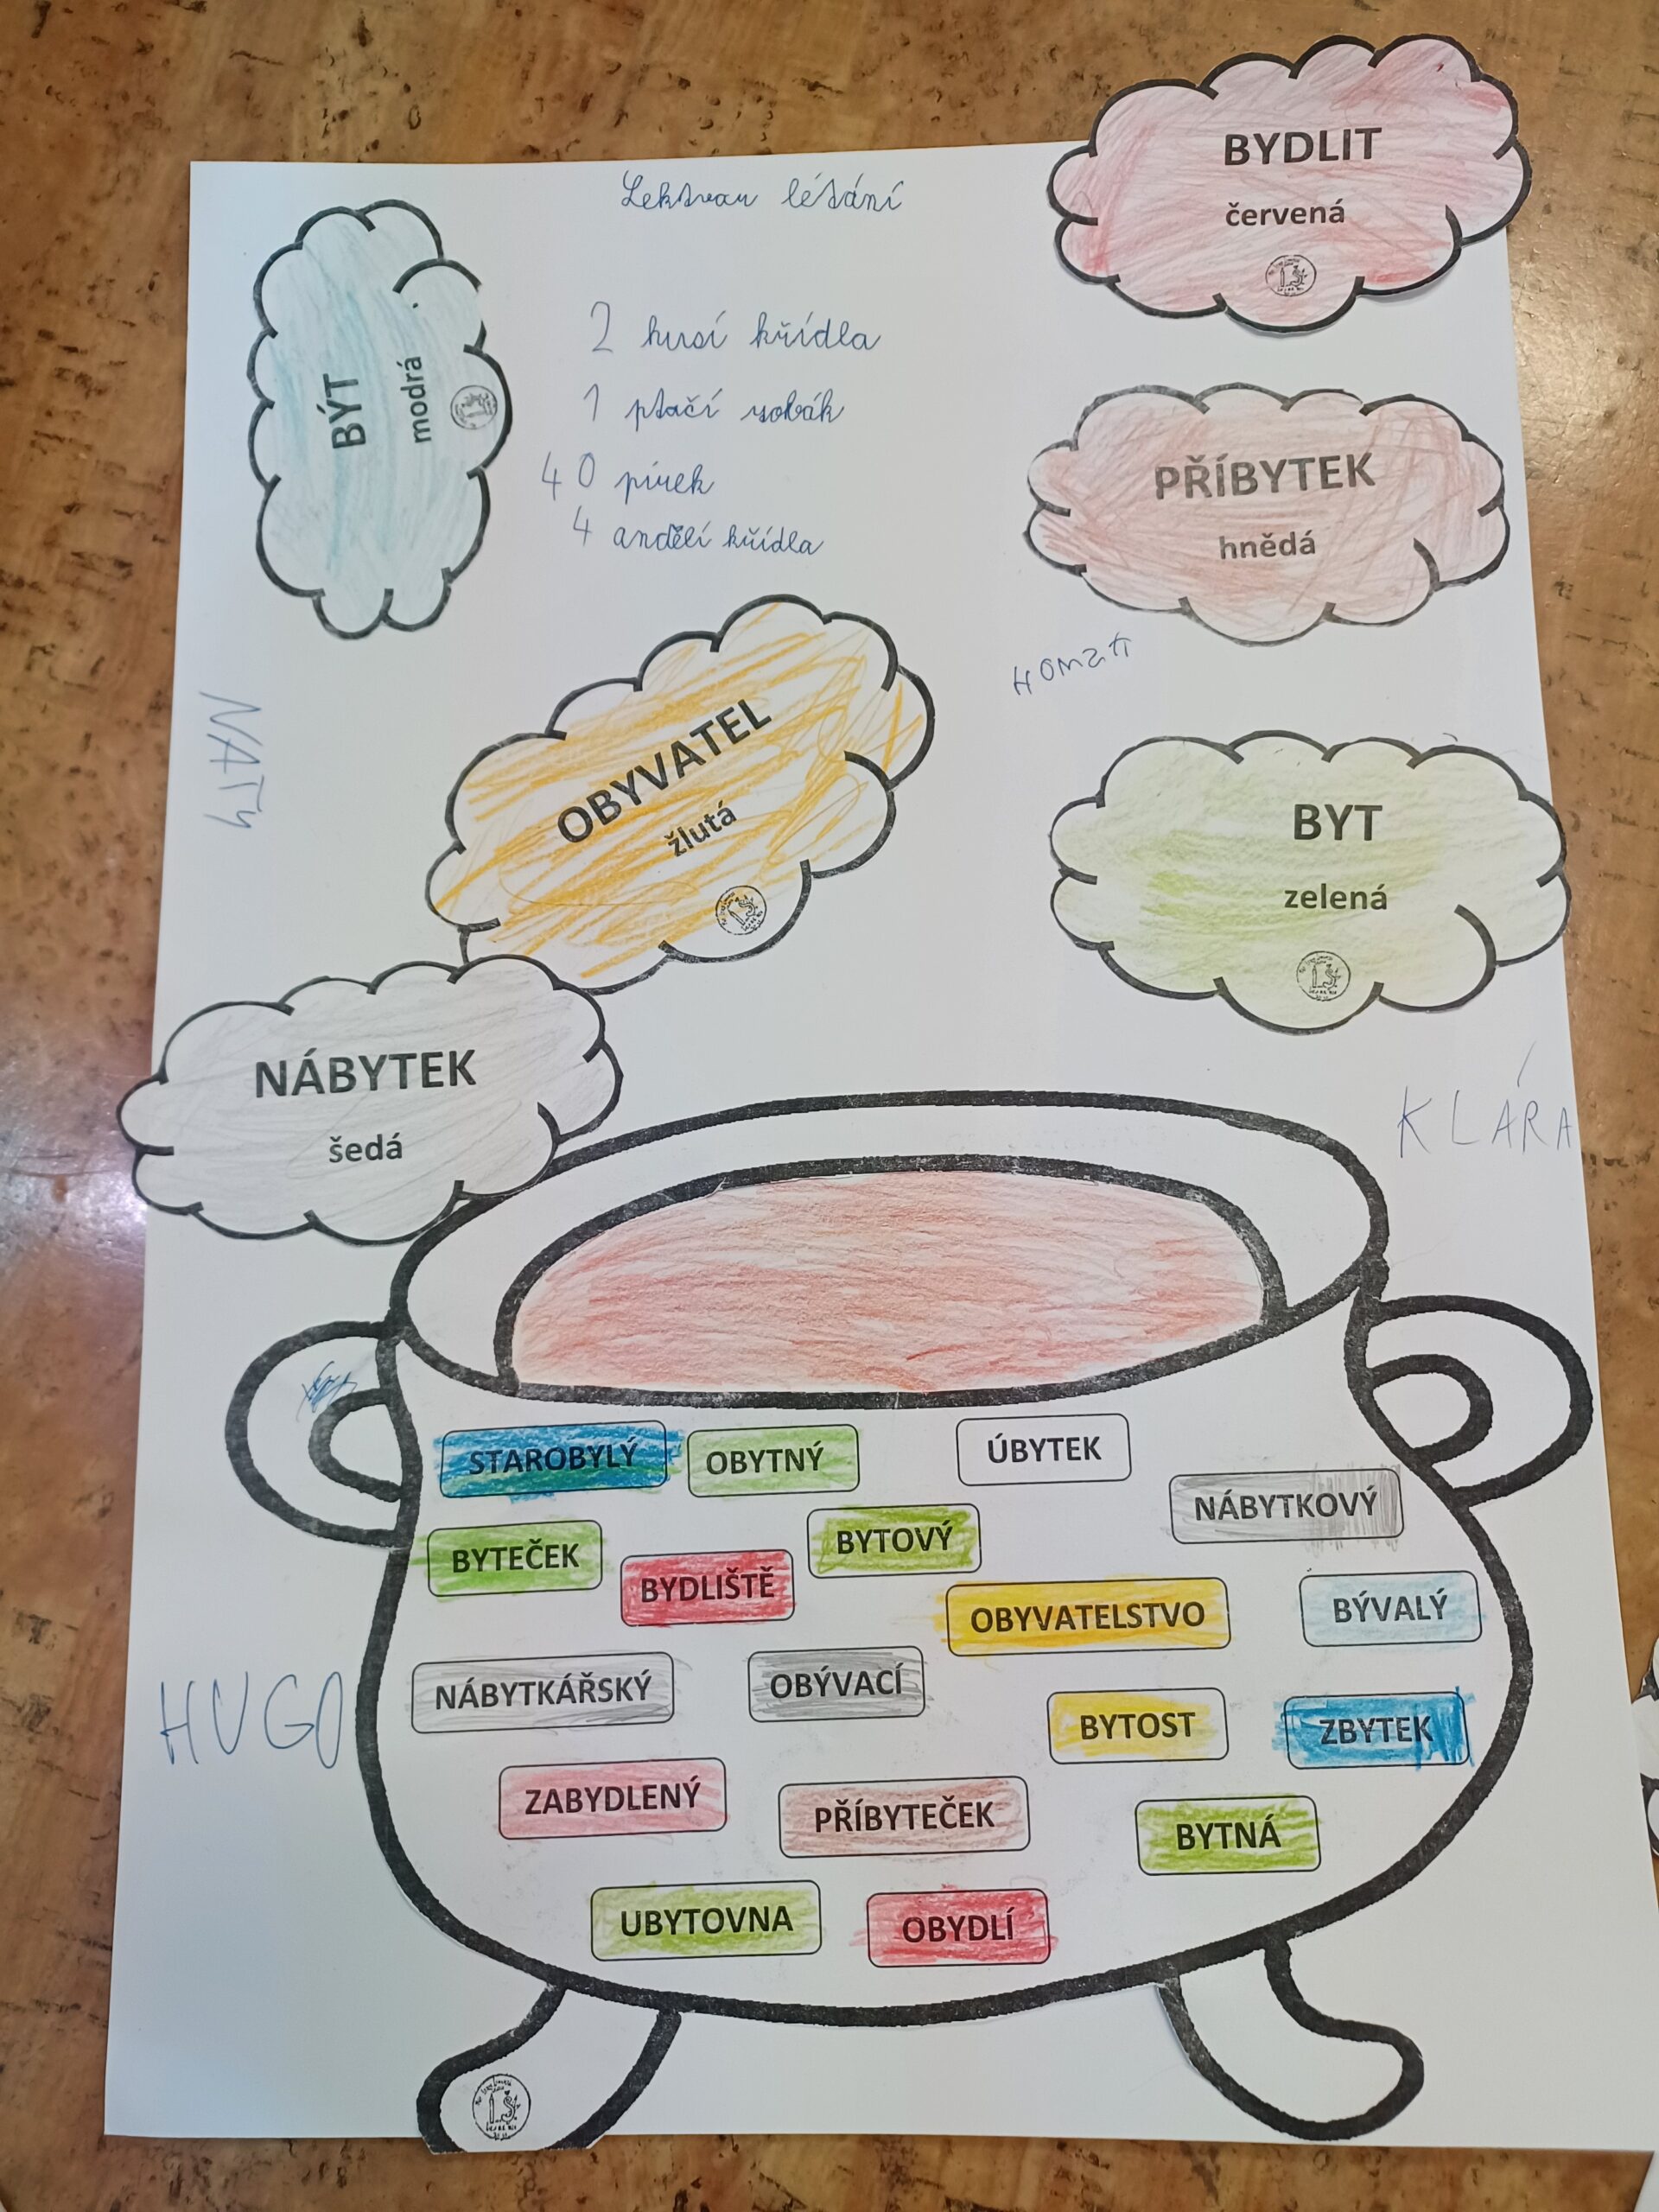 BYDLIT
červená
Lektvar létání
BÝT
modrá
2 husí křídla
1 ptačí zobák
40 pírek
4 andělí křídla
PŘÍBYTEK
hnědá
NATY
OBYVATEL
žlutá
BYT
zelená
NÁBYTEK
šedá
KLÁRA
STAROBYLÝ OBYTNÝ ÚBYTEK
NÁBYTKOVÝ
BYTEČEK BYTOVÝ
BYDLIŠTĚ
OBYVATELSTVO BÝVALÝ
NÁBYTKÁŘSKÝ OBÝVACÍ
BYTOST ZBYTEK
HUGO
ZABYDLENÝ PŘÍBYTEČEK BYTNÁ
UBYTOVNA OBYDLÍ